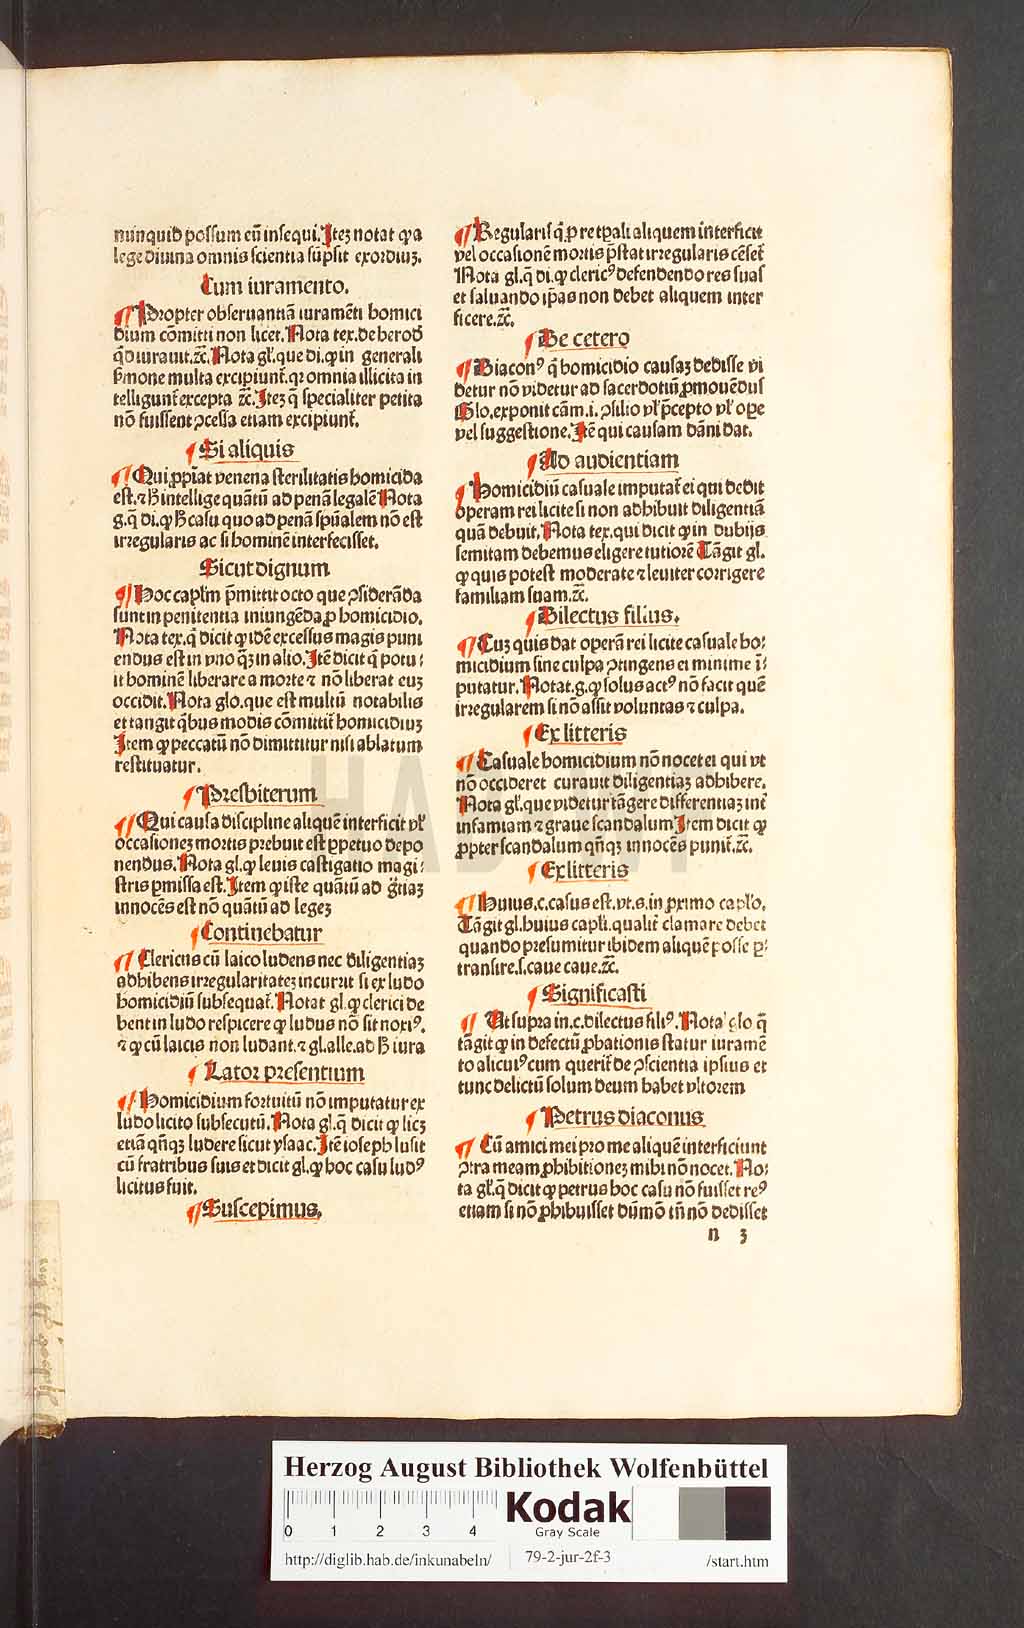 nunquid possum eū insequi. Itez notat ꝙ a
lege diuina omnis scientia sūpsit exordiuz.
Cum iuramento.
¶ Propter obseruantiā iuramēti homici
dium cōmitti non licet. Nota tex. de herod̄
q̄d iurauit. ⁊c̄. Nota gl̄. que di. ꝙ in generali
ẜmone multa excipiunt̄. qꝛ omnia illicita in
telligunt̄ excepta ⁊c̄. Itez q̄ specialiter petita
nō fuissent ꝯcessa etiam excipiunt̄.
¶ Si aliquis
¶ Qui ꝓpīat venena sterilitatis homicida
est. ⁊ ħ intellige quātū ad penā legalē Nota
g. q̄ di. ꝙ ħ casu quo ad penā spūalem nō est
irregularis ac si hominē interfecisset.
Sicut dignum
¶ Hoc capl̄m p̄mittit octo que ꝯsiderāda
sunt in penitentia iniungēda ꝓ homicidio.
Nota tex. q̄ dicit ꝙ idē excessus magis puni
endus est in vno q̄ȝ in alio. Itē dicit q̄ potu⸗
it hominē liberare a morte ⁊ nō liberat euz
occidit. Nota glo. que est multū notabilis
et tangit qb̄us modis cōmittit̄ homicidiuz
Item ꝙ peccatū nō dimittitur nisi ablatum
restituatur.
¶ Presbiterum
¶ Qui causa discipline aliquē interficit vl̄
occasionez mortis prebuit est ꝑpetuo depo
nendus. Nota gl. ꝙ leuis castigatio magi⸗
stris ꝑmissa est. Item ꝙ iste quātū ad gr̄iaz
innocēs est nō quātū ad legez
¶ Continebatur
¶ Clericus cū laico ludens nec diligentiaz
adhibens irregularitatez incurrit si ex ludo
homicidiū subsequat̄. Notat gl. ꝙ clerici de
bent in ludo respicere ꝙ ludus nō sit noxi⁹.
⁊ ꝙ cū laicis non ludant. ⁊ gl. alle. ad ħ iura
¶ Lator presentium
¶ Homicidium fortuitū nō imputatur ex
ludo licito subsecutū. Nota gl. q̄ dicit ꝙ licȝ
etiā qn̄qȝ ludere sicut ysaac. Itē ioseph lusit
cū fratribus suis et dicit gl. ꝙ hoc casu lud⁹
licitus fuit.
¶ Suscepimus.
¶ Regularis q̄ ꝓ re tp̄ali aliquem interficit
vel occasionē mortis p̄stat irregularis cēset̄
Nota gl. q̄ di. ꝙ cleric⁹ defendendo res suas
et saluando ip̄as non debet aliquem inter
ficere. ⁊c̄.
¶ De cetero
¶ Diacon⁹ q̄ homicidio causaz dedisse vi
detur nō videtur ad sacerdotiū ꝓmouēdus
Glo. exponit cām. i. ꝯsilio vl̄ p̄cepto vl̄ ope
vel suggestione. Itē qui causam dāni dat.
¶ Ad audientiam
¶ Homicidiū casuale imputat̄ ei qui dedit
operam rei licite si non adhibuit diligentiā
quā debuit. Nota tex. qui dicit ꝙ in dubijs
semitam debemus eligere tutiorē Tāgit gl.
ꝙ quis potest moderate ⁊ leuiter corrigere
familiam suam. ⁊c̄.
¶ Dilectus filius.
¶ Cuz quis dat operā rei licite casuale ho⸗
micidium sine culpa ꝯtingens ei minime ī⸗
putatur. Notat. g. ꝙ solus act⁹ nō facit quē
irregularem si nō assit voluntas ⁊ culpa.
¶ Ex litteris
¶ Casuale homicidium nō nocet ei qui vt
nō occideret curauit diligentiaz adhibere.
Nota gl̄. que videtur tāgere differentiaz int̄
infamiam ⁊ graue scandalum Item dicit ꝙ
ꝓpter scandalum qn̄qȝ innocēs punit̄. ⁊c̄.
¶ Ex litteris
¶ Huius. c. casus est. vt. s. in proximo capl̓o.
Tāgit gl. huius capl̓i. qualit̄ clamare debet
quando presumitur ibidem aliquē posse ꝑ⸗
transire. s. caue caue. ⁊c̄.
¶ Significasti
¶ Ut supra in. c. dilectus fili⁹. Nota glo q̄
tāgit ꝙ in defectū ꝓbationis statur iuramē
to alicui⁹ cum querit̄ de ꝯscientia ipsius et
tunc delictū solum deum habet vltorem
¶ Petrus diaconus
¶ Cū amici mei pro me aliquē interficiunt
ꝯtra meam ꝓhibitionez mihi nō nocet. No⸗
ta gl̄. q̄ dicit ꝙ petrus hoc casu nō fuisset re⁹
etiam si nō ꝓhibuisset dūmō tn̄ nō dedisset
n 3
HAB WF
Herzog August Bibliothek Wolfenbüttel
0 1 2 3 4
Kodak
Gray Scale
http://diglib.hab.de/inkunabeln/ 79-2-jur-2f-3 /start.htm